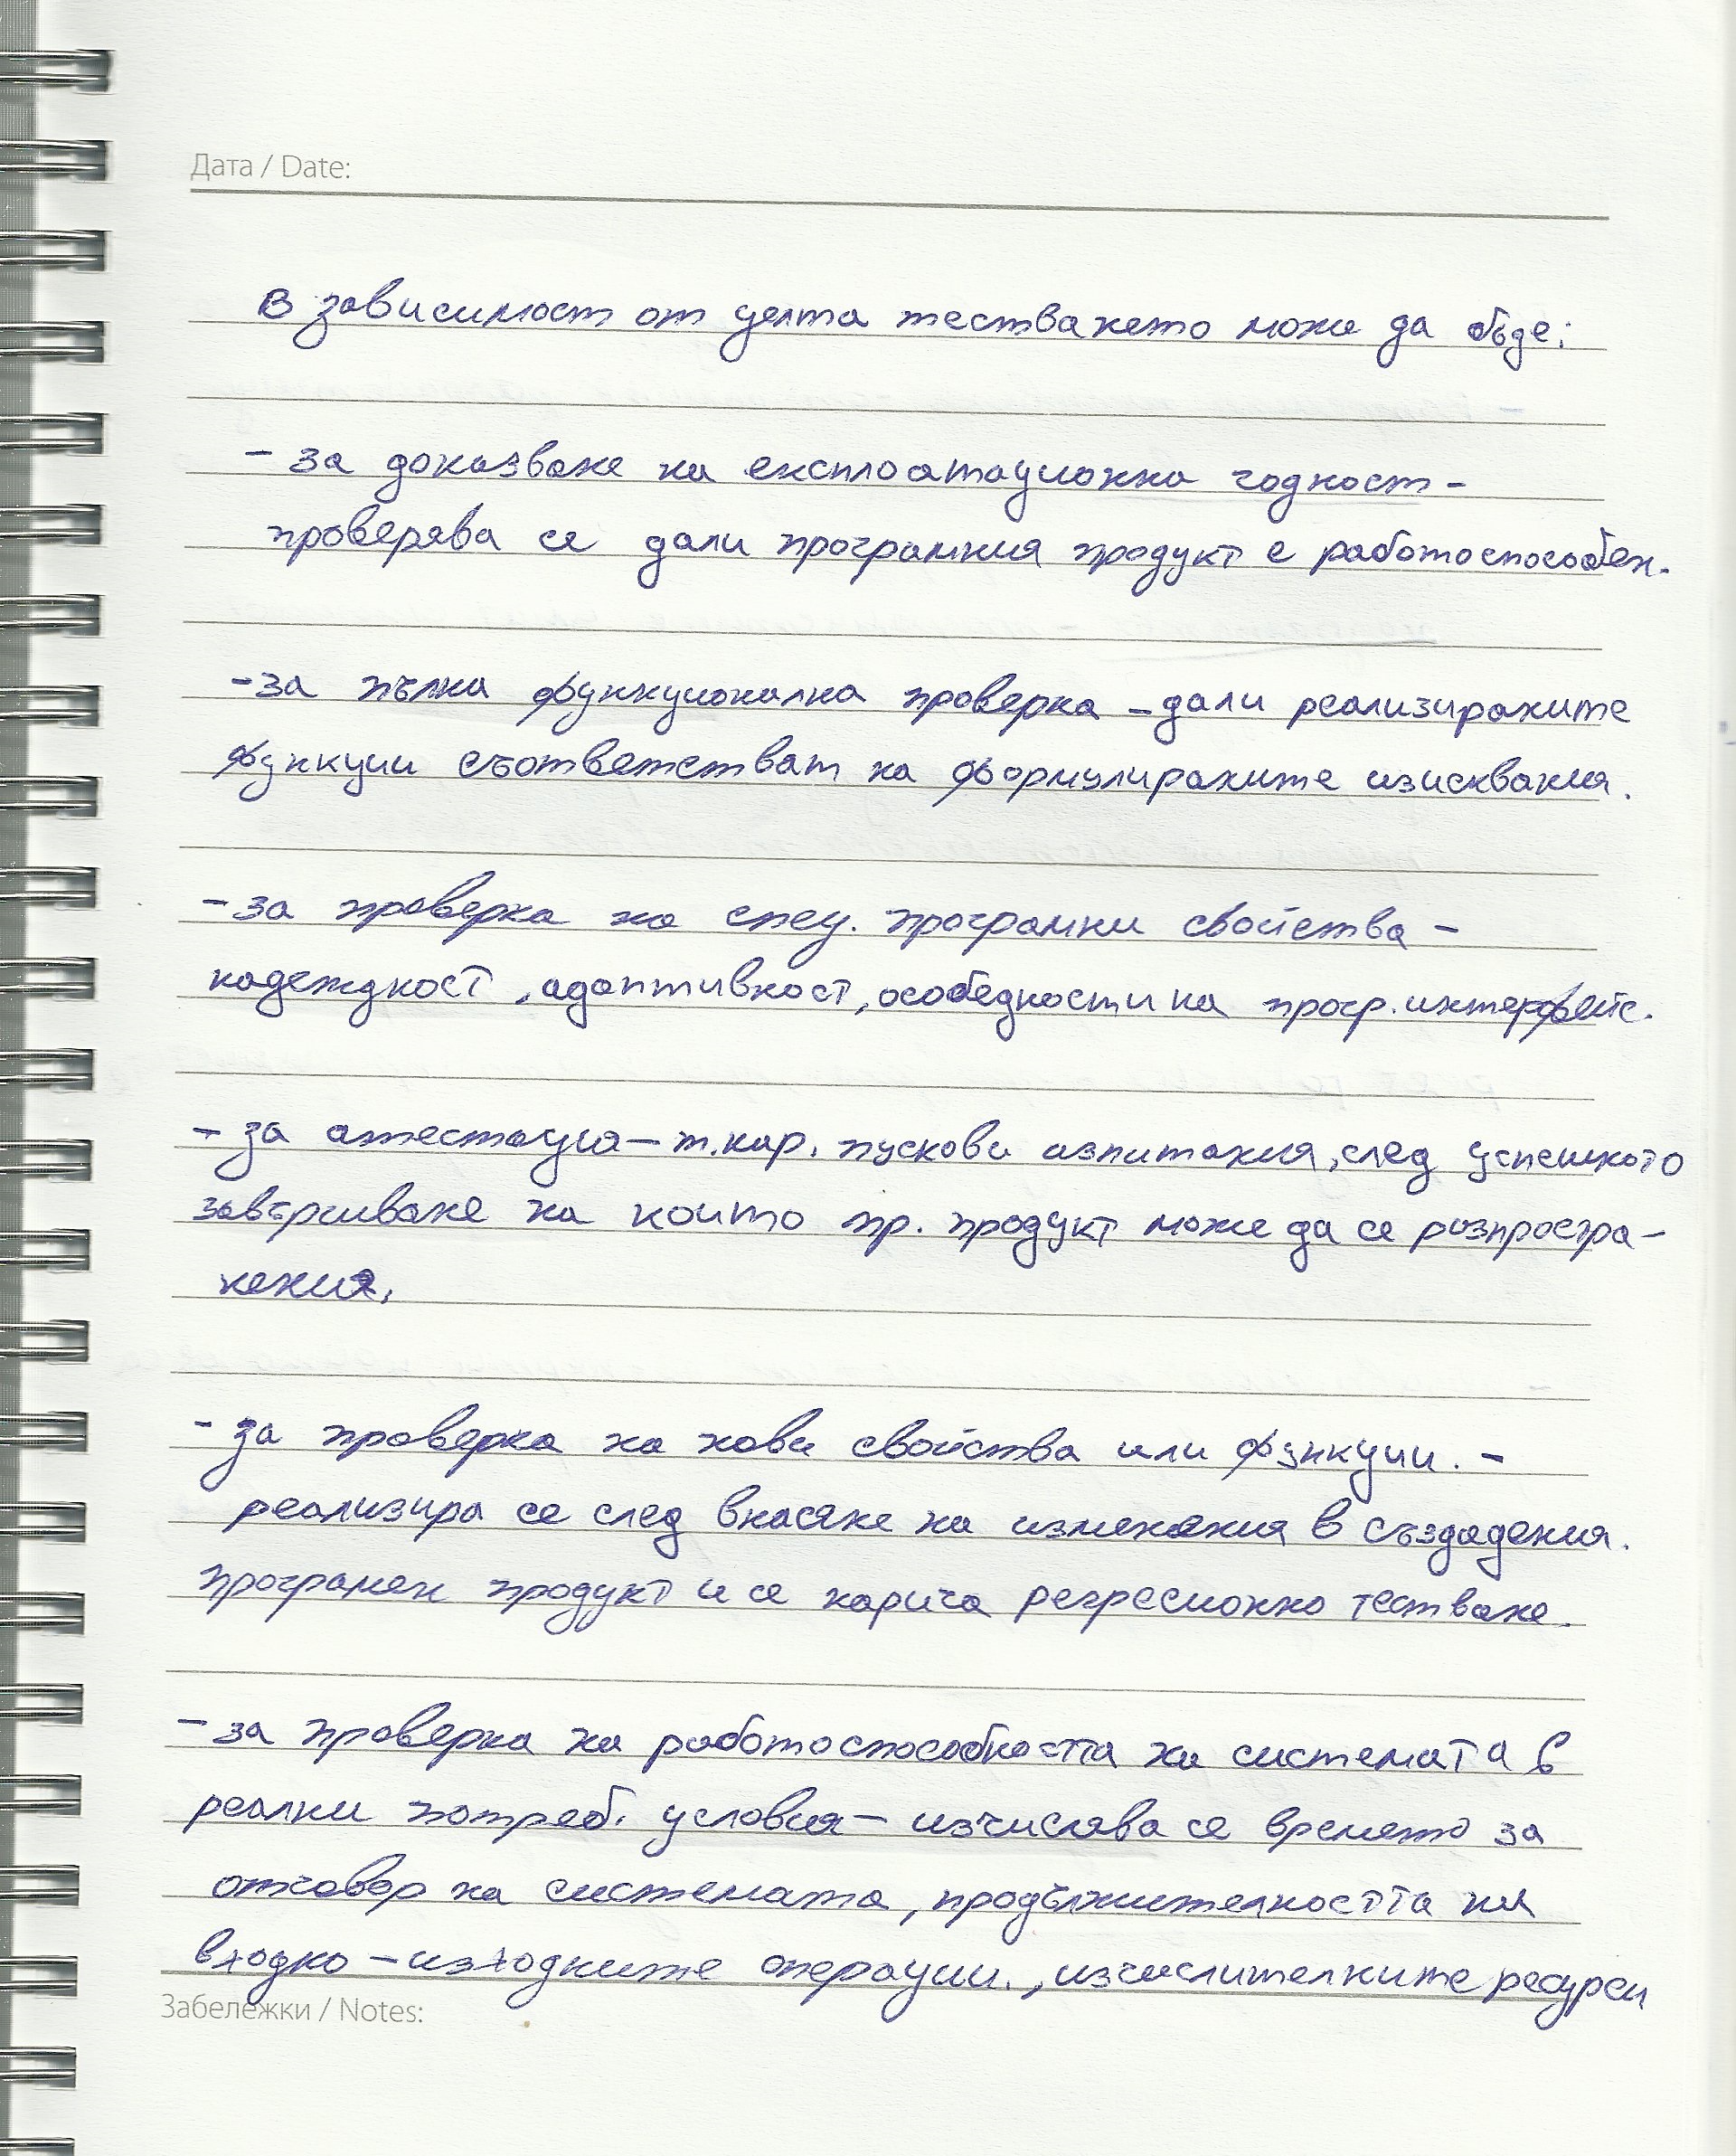 Дата / Date:
В зависимост от целта тестването може да бъде:
- за доказване на експлоатационна годност -
проверява се дали програмния продукт е работоспособен.
- за пълна функционална проверка - дали реализираните
функции съответстват на формулираните изисквания.
- за проверка на спец. програмни свойства -
надеждност, адаптивност, особедности на прогр. интерфейс.
- за атестация - т.нар. пускови изпитания, след успешното
завършване на които пр. продукт може да се разпростра-
нения.
- за проверка на нови свойства или функции. -
реализира се след внасяне на изменения в създадения.
програмен продукт и се нарича регресионно тестване.
- за проверка на работоспособността на системата в
реални потреб. условия - изчислява се времето за
отговор на системата, продължителността на
входно - изходните операции., изчислителните ресурси
Забележки / Notes: